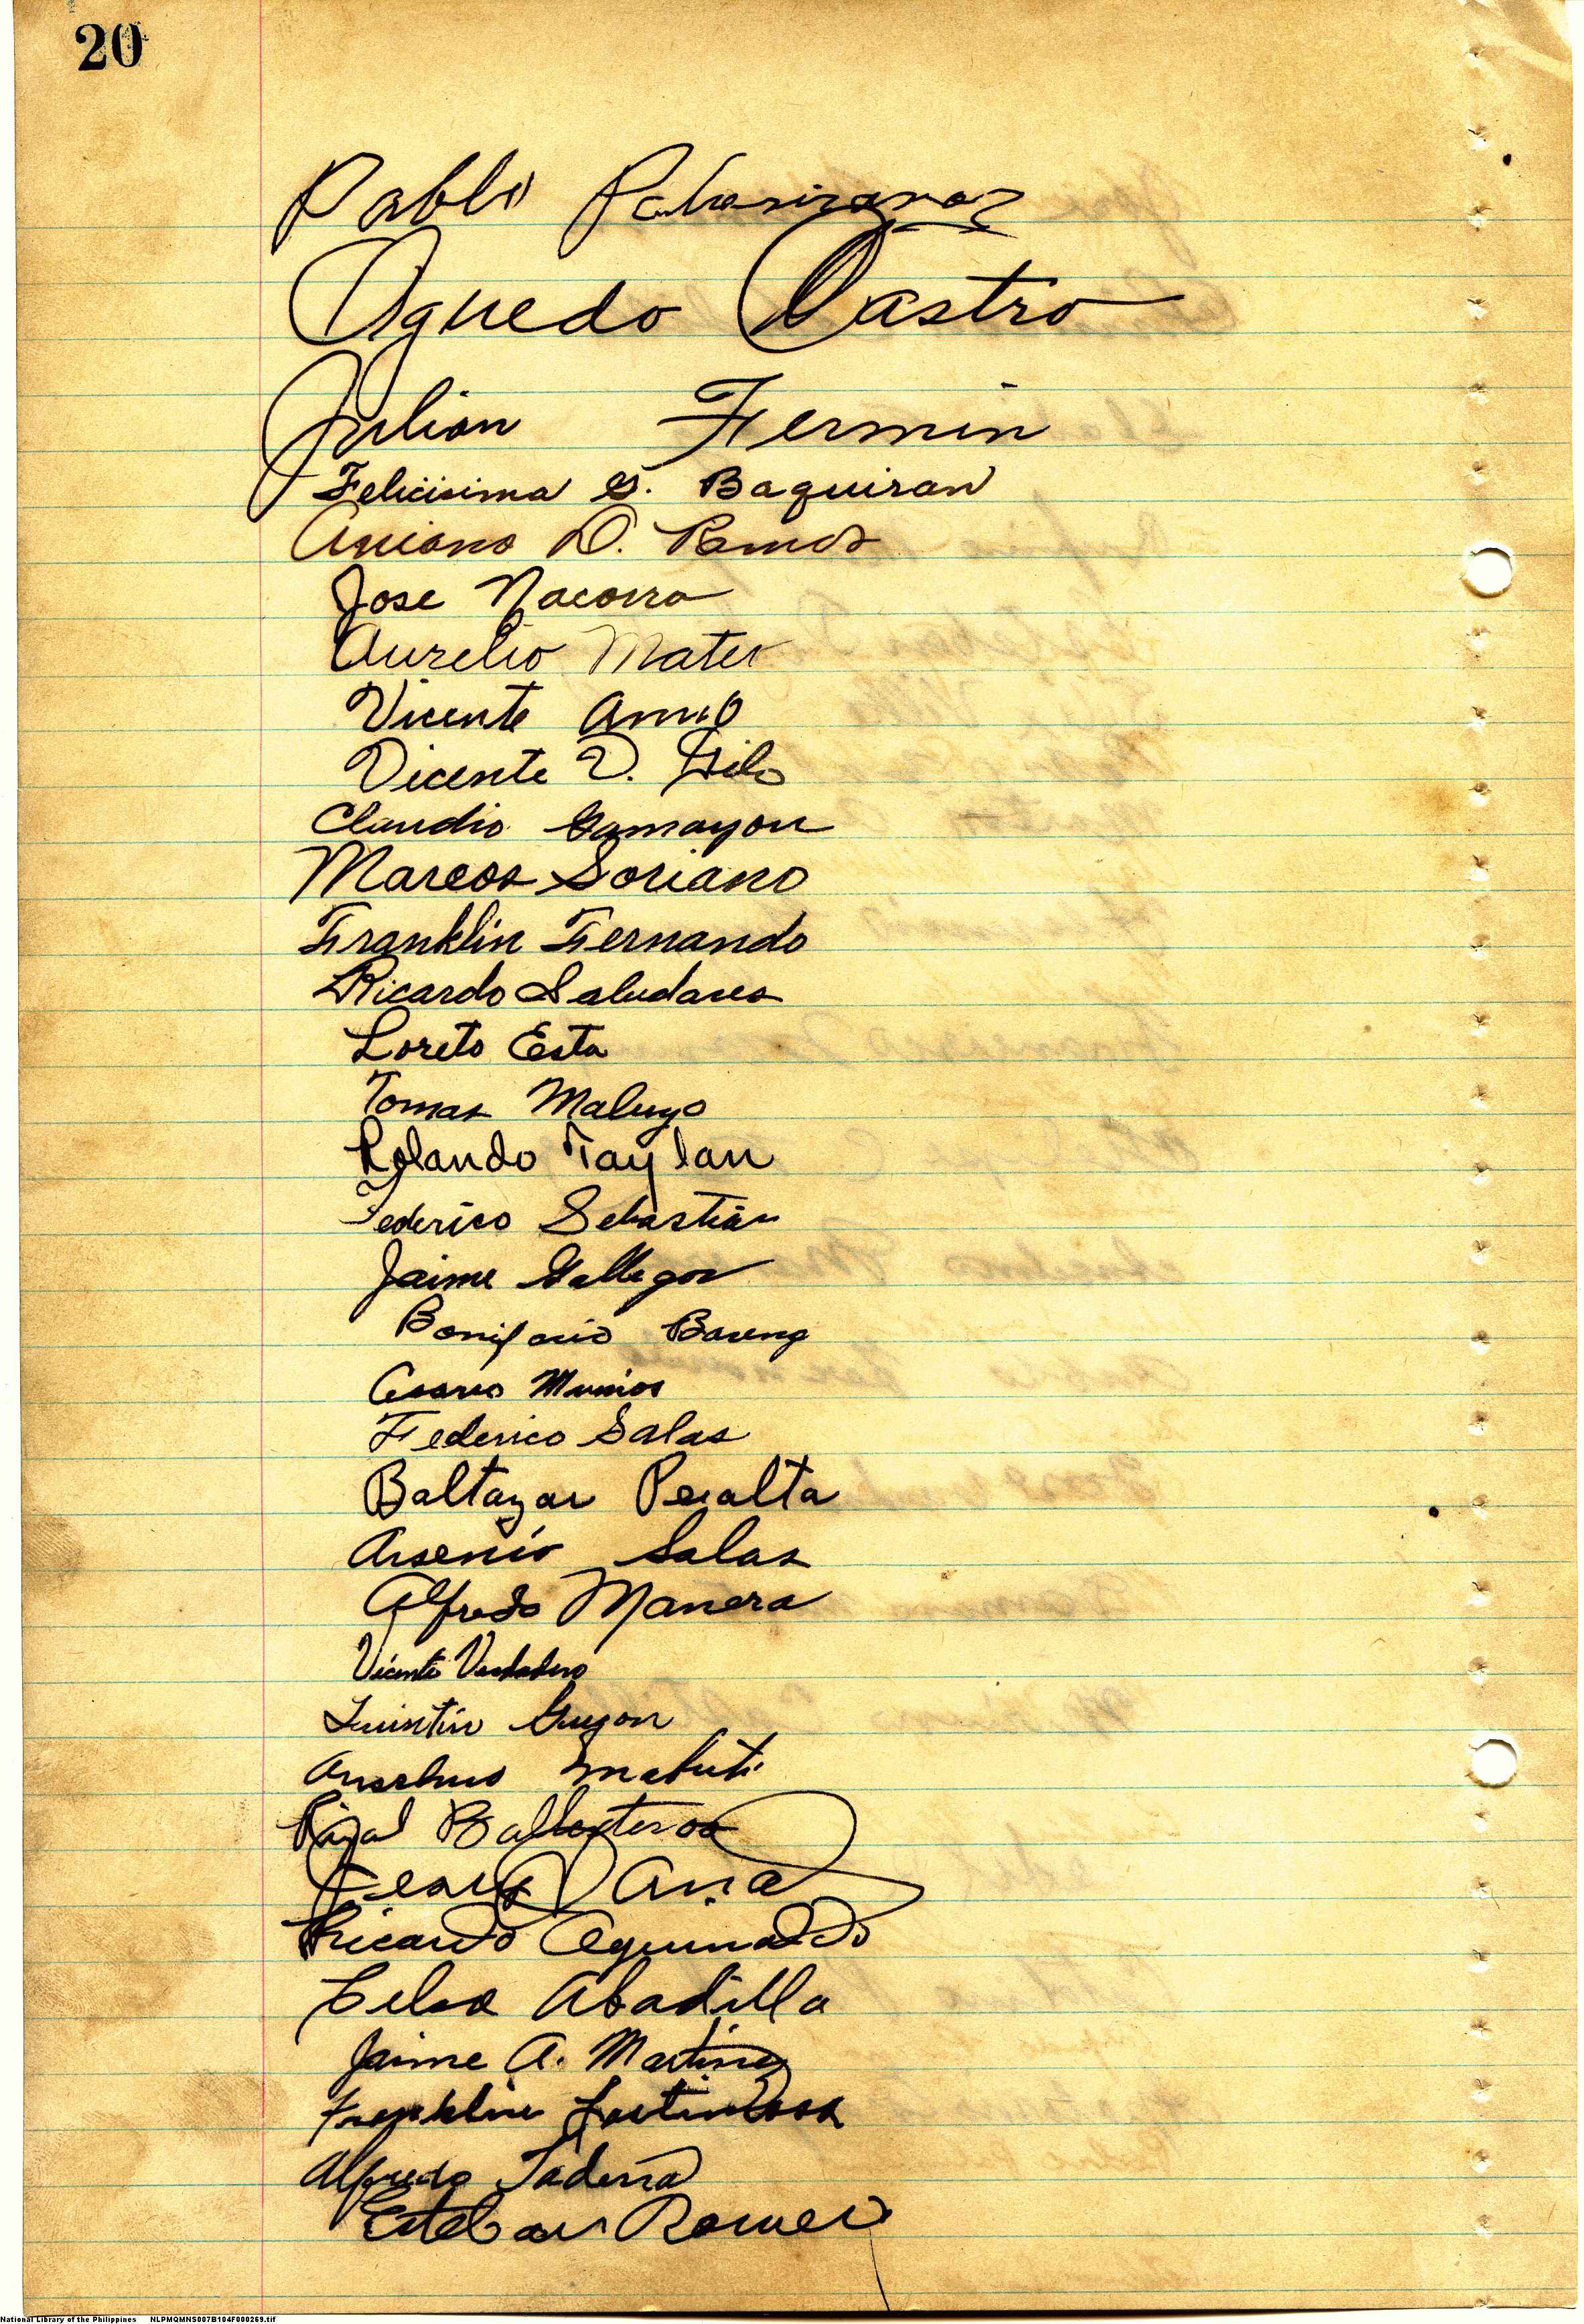 20
Pablo
Aguedo Castro
Julian Fermin
Felicisima G. Baquiran
Aniano D. Ramos
Jose Nacorra
Aurelio Mateo
Vicente
Vicente D. Gilo
Claudio Gamayon
Marcos Soriano
Franklin Fernando
Ricardo Saludares
Loreto Esta
Tomas Maluyo
Rolando Taylan
Federico Sebastian
Jaime Gallegos
Bonifacio Bareng
Munios
Federico Salas
Baltazar Peralta
Arsenio Salas
Alfredo Manera
Vicente Verdadero
Quintin Guyon
Anselmo Mabuti
Rizal Ballesteros
Ricardo Aguinaldo
Celso Abadilla
Jaime A. Martinez
Franklin
Alfredo Taderra
Esteban Romero
National Library of the Philippines NLPMQMNS007B104F000269.tif